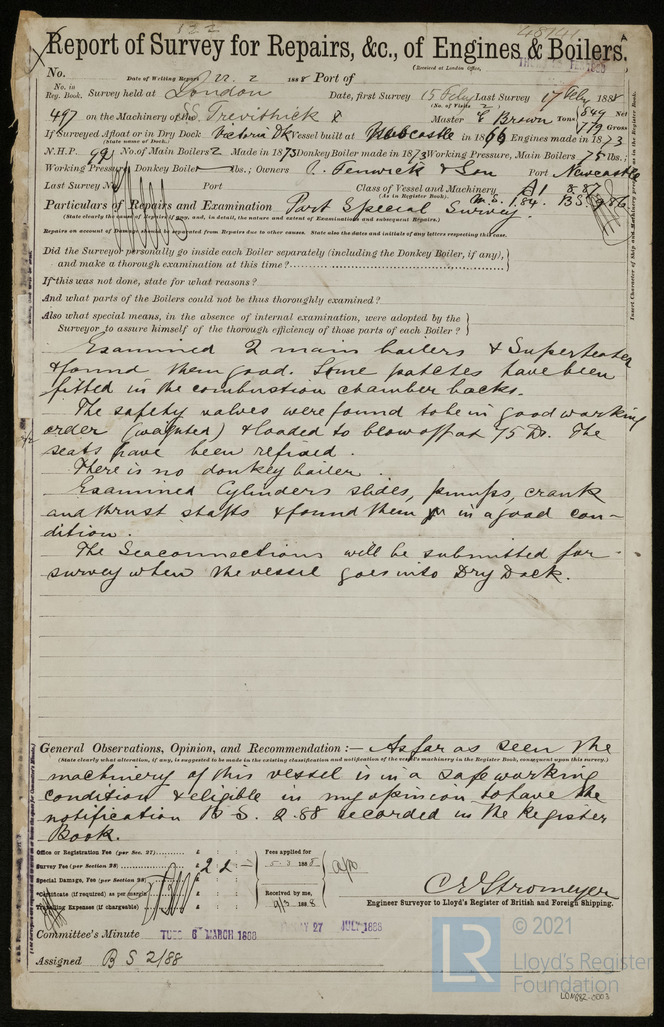 122
48741
Report of Survey for Repairs, &c., of Engines & Boilers.
(Received at London Office,
No. Date of Writing Report 22. 2 1888 Port of
No. in Reg. Book. Survey held at London Date, first Survey 15 Feby Last Survey 17 Feby 1888
(No. of Visits 2)
497 on the Machinery of the SS Trevithick Master E Brown Tons 849 Net
779 Gross
If Surveyed Afloat or in Dry Dock Victoria Dk Vessel built at Newcastle in 1866 Engines made in 1873
(State name of Dock.)
N.H.P. 99 No. of Main Boilers 2 Made in 1873 Donkey Boiler made in 1873 Working Pressure, Main Boilers 75 lbs.;
Working Pressure, Donkey Boiler lbs.; Owners Fenwick & Son Port Newcastle
Last Survey No. Port Class of Vessel and Machinery A1 8.87
(As in Register Book). M.S. 1.84. B.S. 2.86
Particulars of Repairs and Examination Part Special Survey.
(State clearly the cause of Repairs if any, and, in detail, the nature and extent of Examinations and subsequent Repairs.)
Repairs on account of Damage should be separated from Repairs due to other causes. State also the dates and initials of any letters respecting this case.
Did the Surveyor personally go inside each Boiler separately (including the Donkey Boiler, if any),
and make a thorough examination at this time?
If this was not done, state for what reasons?
And what parts of the Boilers could not be thus thoroughly examined?
Also what special means, in the absence of internal examination, were adopted by the
Surveyor to assure himself of the thorough efficiency of those parts of each Boiler?
Examined 2 main boilers & Superheater
& found them good. Some patches have been
fitted in the combustion chamber backs.
The safety valves were found to be in good working
order (weighted) & loaded to blow off at 75 lbs. The
seats have been refaced.
There is no donkey boiler.
Examined Cylinders slides, pumps, crank
and thrust shafts & found them in a good con-
dition.
The Seaconnections will be submitted for
survey when the vessel goes into Dry Dock.
General Observations, Opinion, and Recommendation:— As far as seen the
(State clearly what alteration, if any, is suggested to be made in the existing classification and notification of the vessel's machinery in the Register Book, consequent upon this survey.)
machinery of this vessel is in a safe working
condition & eligible in my opinion to have the
notification B S. 2.88 recorded in the Register
Book.
Office or Registration Fee (per Sec. 27) £ : :
Survey Fee (per Section 28) £ 2 2 -
Special Damage, Fee (per Section 28) £ : :
Certificate (if required) as per margin £ : :
Travelling Expenses (if chargeable) £ : :
Fees applied for
5-3 1888
Received by me,
9/3 1888
C E Stromeyer
Engineer Surveyor to Lloyd's Register of British and Foreign Shipping.
Committee's Minute TUES 6 MARCH 1888 FRIDAY 27 JULY 1888
Assigned B S 2/88
Insert Character of Ship and Machinery precisely as in the Register Book.
© 2021
LR
Lloyd's Register
Foundation
LON882-0003